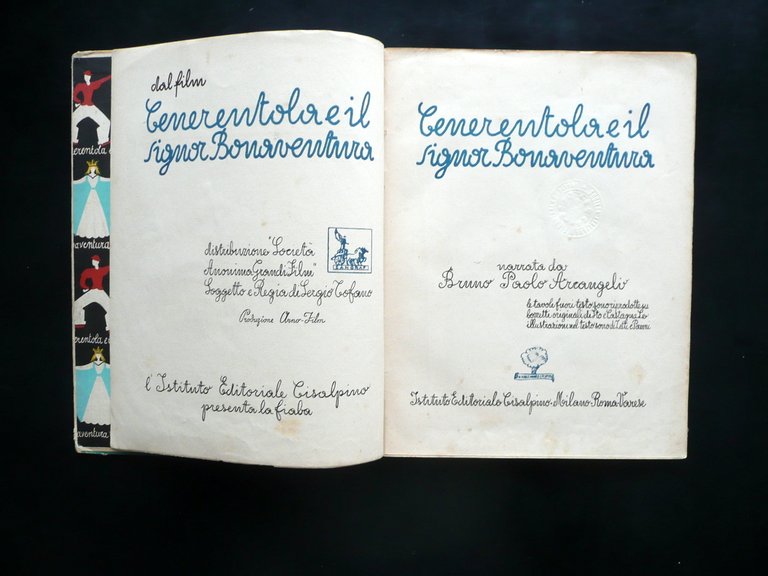 erentola e
aventura
erentola e i
aventura
dal film
Cenerentola e il
signor Bonaventura
distribuzione "Società
Anonima Grandi Film"
Soggetto e Regia di Sergio Tofano
Produzione Arno-Film
l'Istituto Editoriale Cisalpino
presenta la fiaba
Cenerentola e il
signor Bonaventura
narrata da
Bruno Paolo Arcangeli
le tavole fuori testo sono ridotte su
bozzetti originali di Sto e Castagna. Le
illustrazioni nel testo sono di
Istituto Editoriale Cisalpino-Milano-Roma-Varese